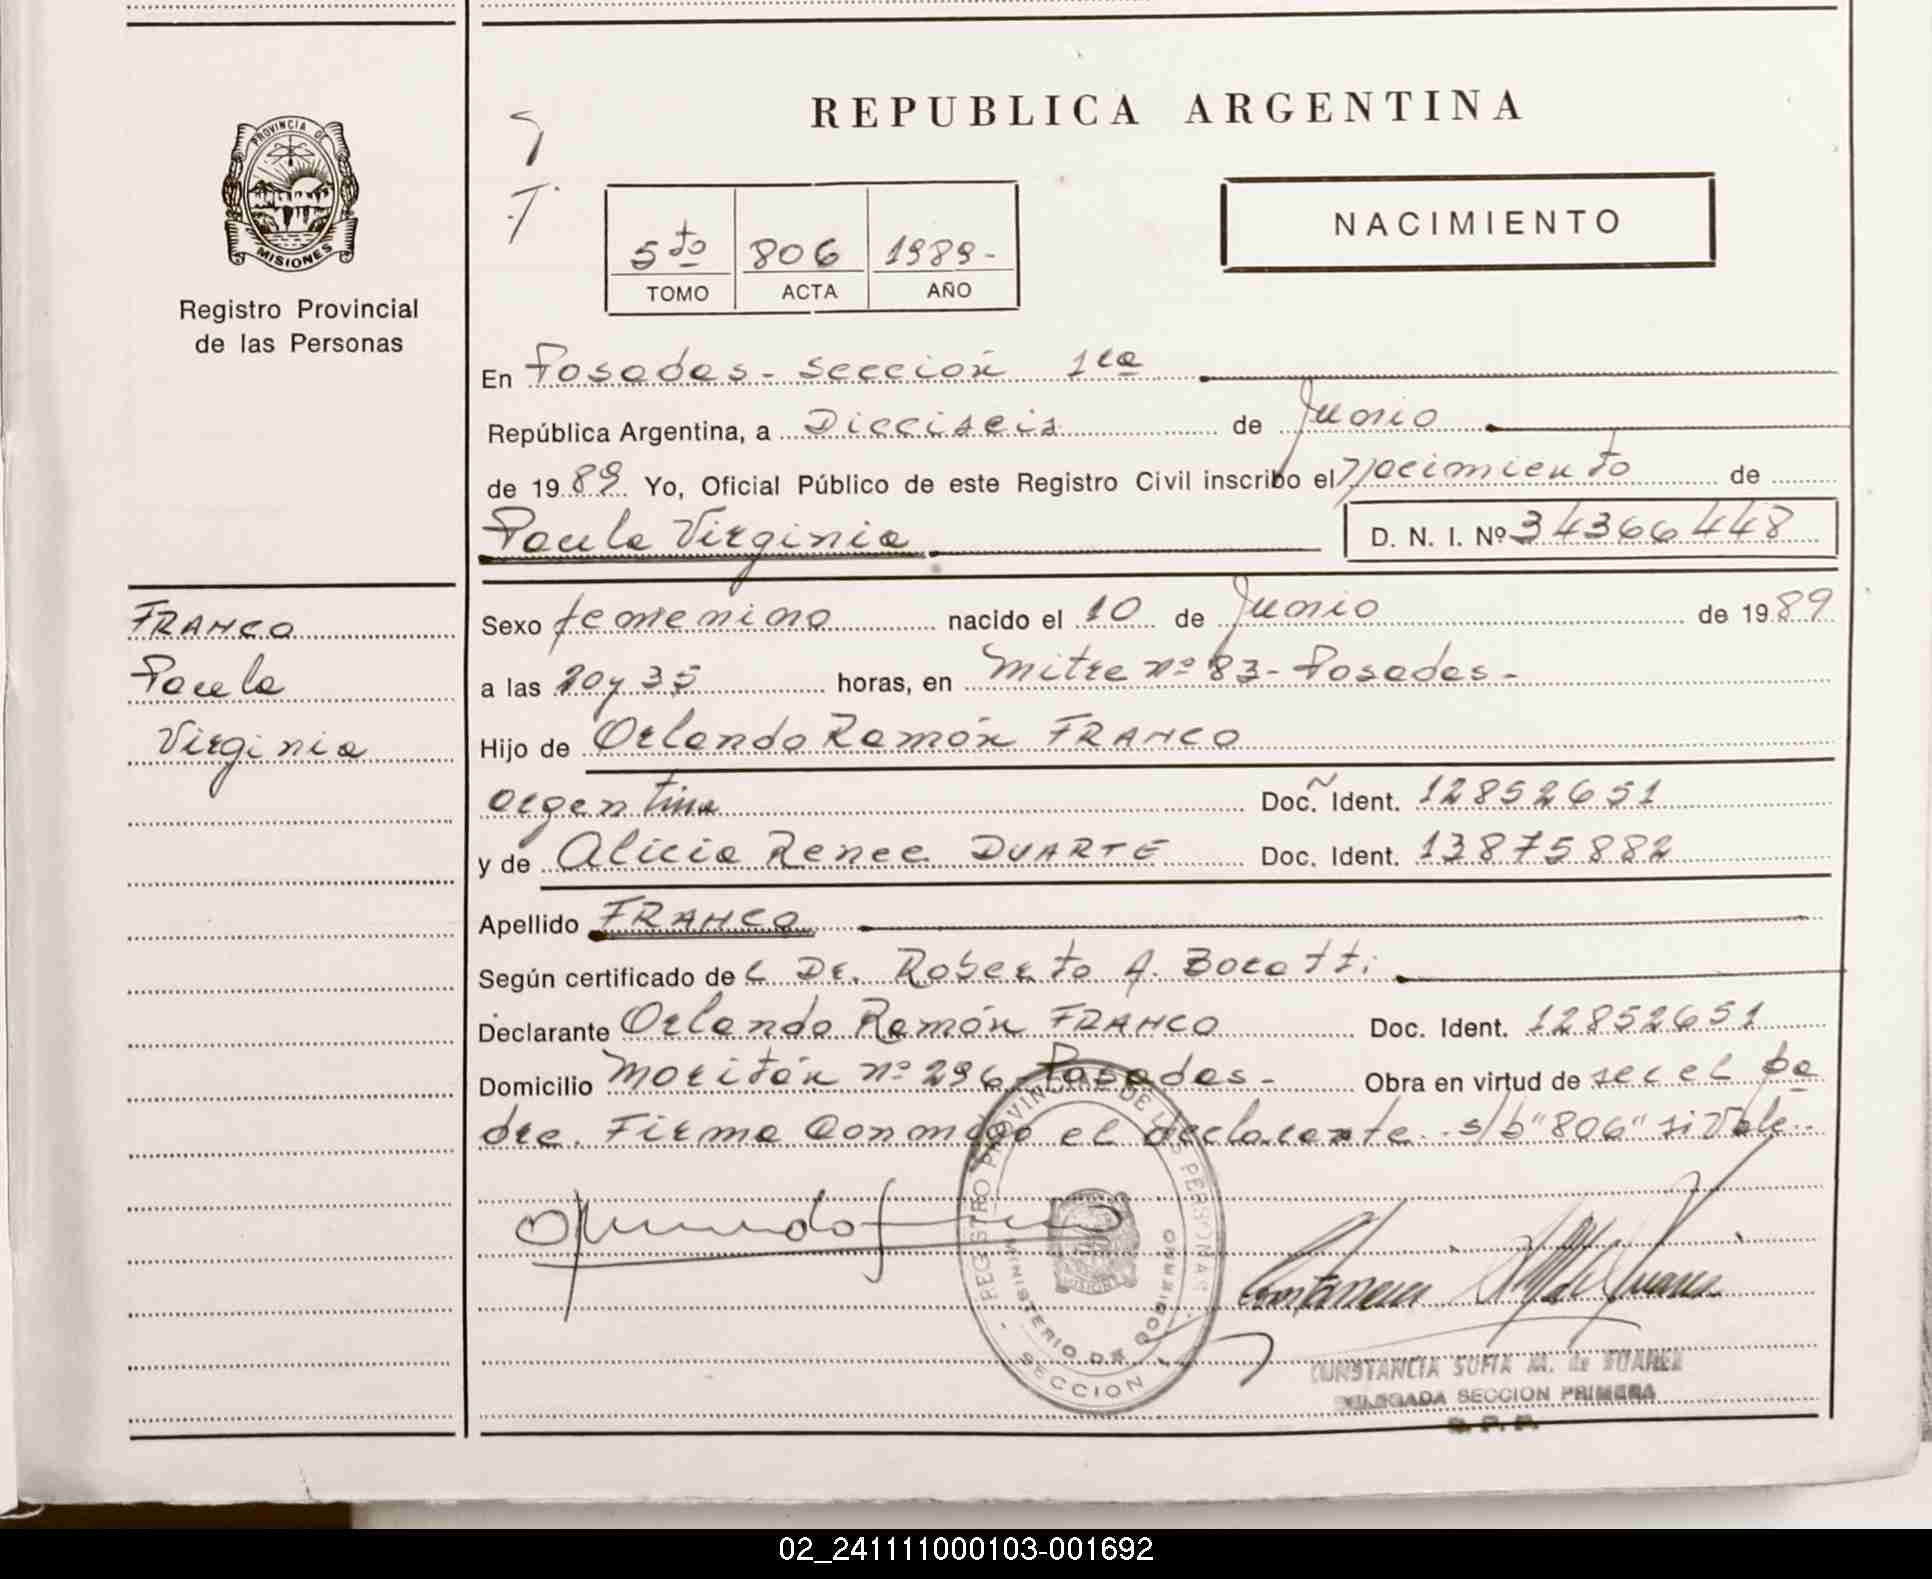 PROVINCIA DE
MISIONES
Registro Provincial
de las Personas
REPUBLICA ARGENTINA
NACIMIENTO
5to 806 1989-
TOMO ACTA AÑO
En Posadas - Sección 1ra
República Argentina, a Dieciseis de Junio
de 1989 Yo, Oficial Público de este Registro Civil inscribo el nacimiento de
Paula Virginia D. N. I. Nº 34366448
FRANCO
Paula
Virginia
Sexo femenino nacido el 10 de Junio de 1989
a las 20 y 35 horas, en Mitre nº 83 - Posadas -
Hijo de Orlando Ramón FRANCO
argentina Doc. Ident. 12852651
y de Alicia Renee DUARTE Doc. Ident. 13875882
Apellido FRANCO
Según certificado del Dr. Roberto A. Borotti
Declarante Orlando Ramón FRANCO Doc. Ident. 12852651
Domicilio Moritán nº 296 Posadas - Obra en virtud de ser el pa
dre. Firma conmigo el declarante. s/b "806" si Vale.-
REGISTRO PROVINCIAL DE LAS PERSONAS
MINISTERIO DE GOBIERNO
SECCION 1
CONSTANCIA SOFIA M. de SUAREZ
DELEGADA SECCION PRIMERA
R. P. P.
02_241111000103-001692